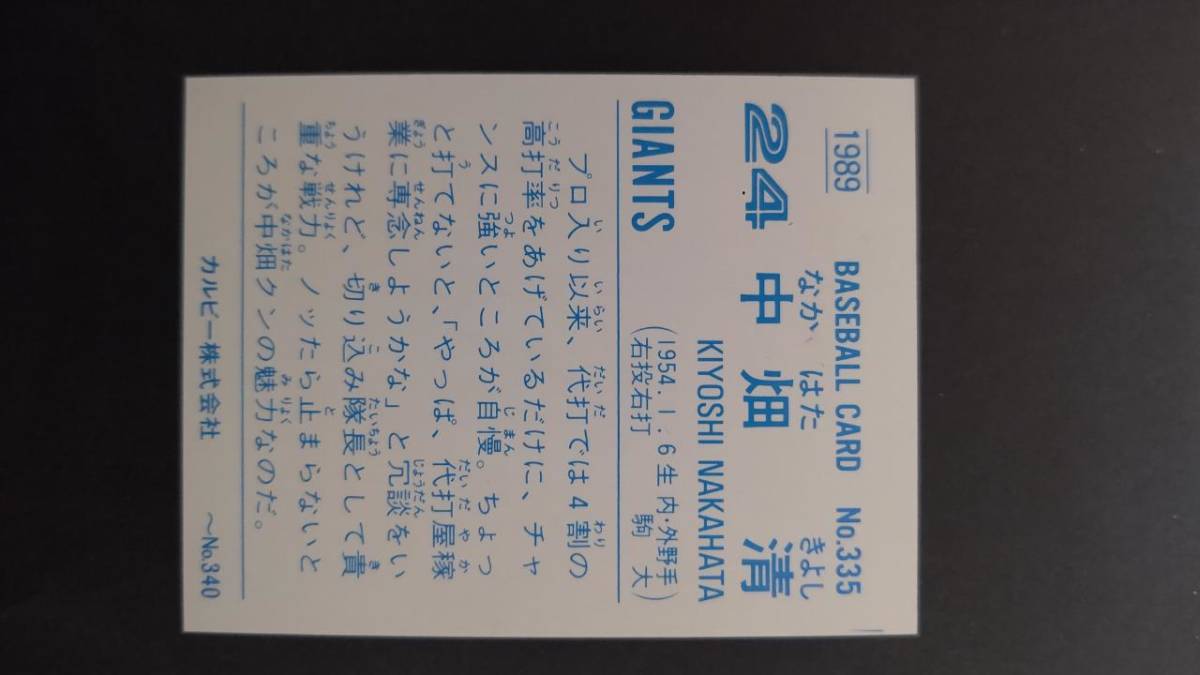 1989 BASEBALL CARD No.335
なか はた きよし
24 中畑 清
KIYOSHI NAKAHATA
GIANTS (1954.1.6生 内・外野手
右投右打 駒 大)
プロ入り以来、代打では4割の
高打率をあげているだけに、チャ
ンスに強いところが自慢。ちょっ
と打てないと、「やっぱ、代打屋稼
業に専念しようかな」と冗談をい
うけれど、切り込み隊長として貴
重な戦力。ノッたら止まらないと
ころが中畑クンの魅力なのだ。
カルビー株式会社 〜No.340